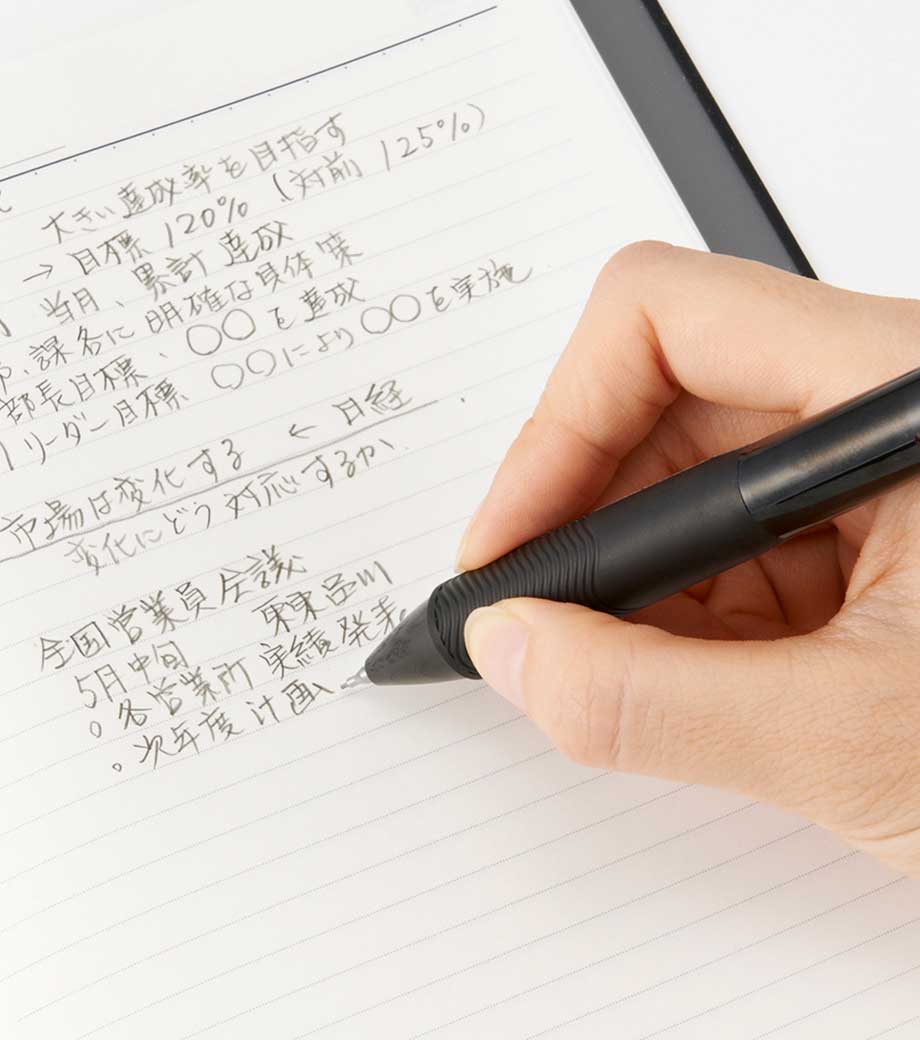 大きい達成率を目指す
→ 目標 120% (対前 125%)
当月、累計 達成
課各に明確な具体策
部長目標、○○を達成
リーダー目標 ○○により○○を実施
市場は変化する ← 日経
変化にどう対応するか
全国営業員会議
5月中旬 東京品川
○各営業所 実績発表
○次年度計画